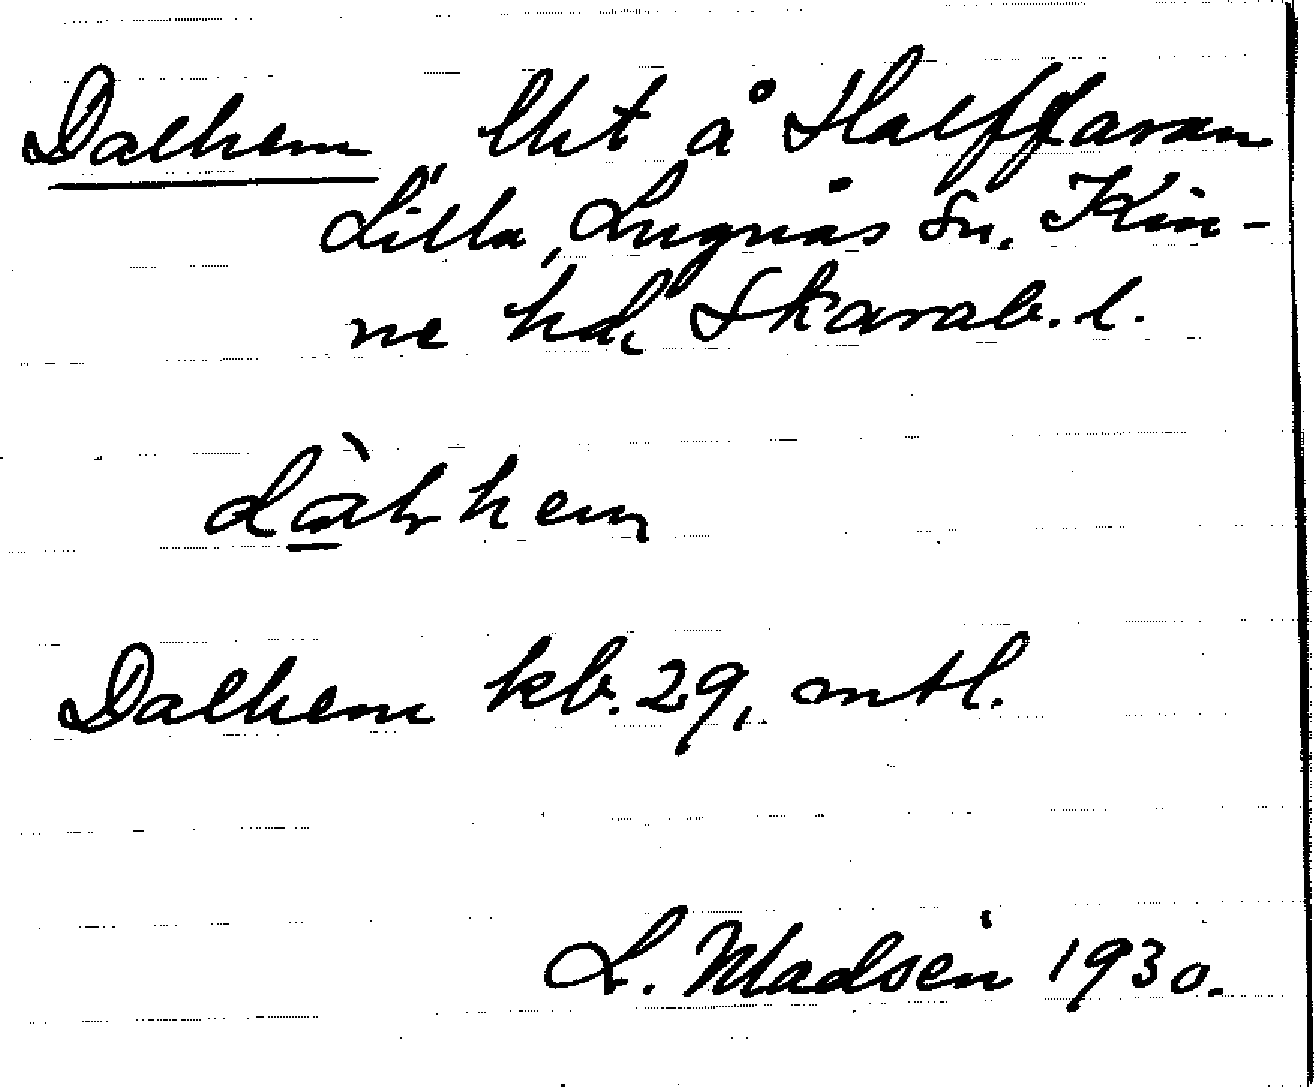 Dalhem lht å Halffaran
Lilla, Lugnås sn, Kin-
ne hd, Skarab. l.
Dalhem kb. 29, mtl.
L. Madsén 1930.